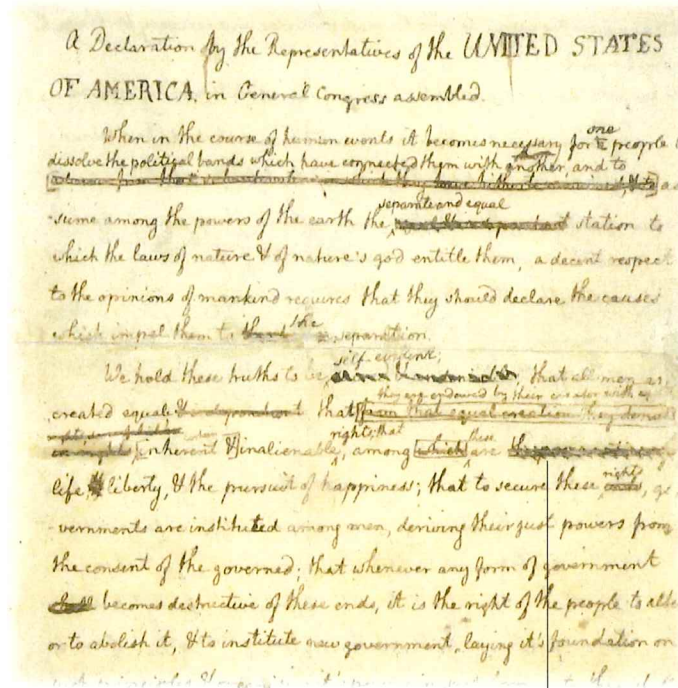 A Declaration by the Representatives of the UNITED STATES
OF AMERICA, in General Congress assembled.
When in the course of human events it becomes necessary for one people
dissolve the political bands which have connected them with another, and to
separate and equal
-sume among the powers of the earth the station to
which the laws of nature & of nature's god entitle them, a decent respect
to the opinions of mankind requires that they should declare the causes
which impel them to the separation.
self-evident;
We hold these truths to be that all men are
they are endowed by their creator with
created equal & independent that from that equal creation they derive
rights; that these
inherent & inalienable, among which are
life, liberty, & the pursuit of happiness; that to secure these rights, go
-vernments are instituted among men, deriving their just powers from
the consent of the governed; that whenever any form of government
becomes destructive of these ends, it is the right of the people to alter
or to abolish it, & to institute new government, laying it's foundation on